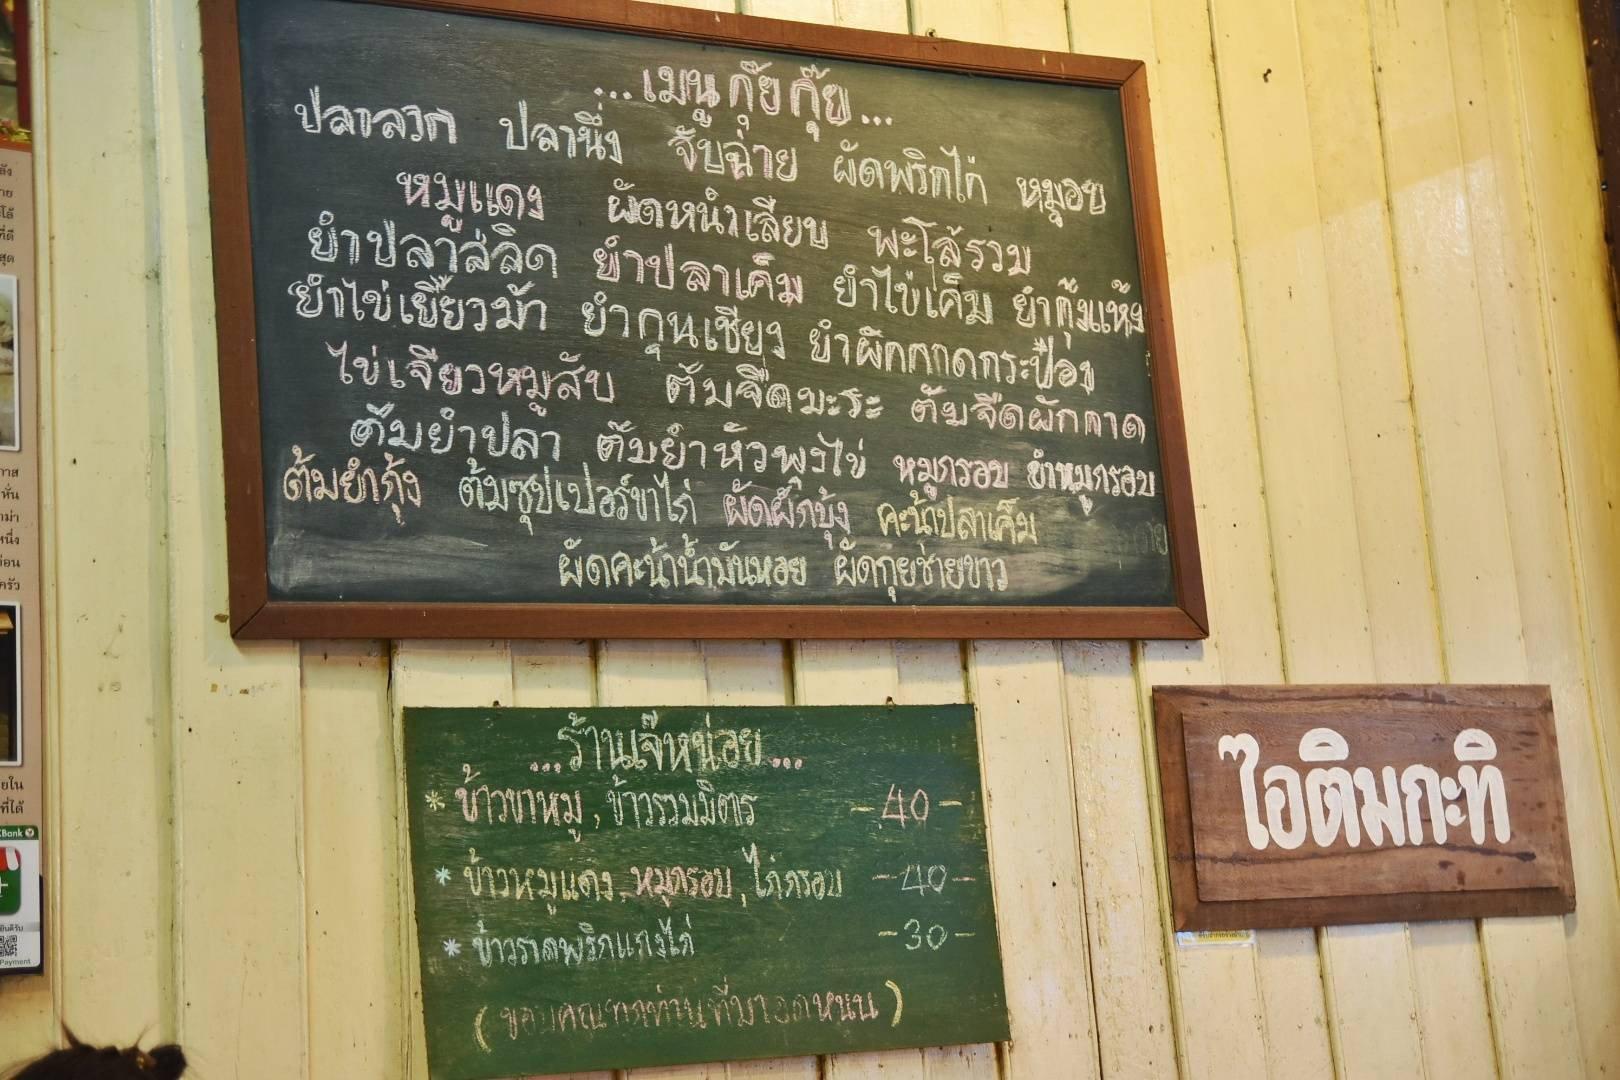 ...เมนูกุ๊ยกุ๊ย...
ปลาลวก ปลานึ่ง จับฉ่าย ผัดพริกไก่ หมูอบ
หมูแดง ผัดหนำเลียบ พะโล้รวม
ยำปลาสลิด ยำปลาเค็ม ยำไข่เค็ม ยำกุ้งแห้ง
ยำไข่เยี่ยวม้า ยำกุนเชียง ยำผักกาดกระป๋อง
ไข่เจียวหมูสับ ต้มจืดมะระ ต้มจืดผักกาด
ต้มยำปลา ต้มยำหัวพุงไข่ หมูกรอบ ยำหมูกรอบ
ต้มยำกุ้ง ต้มซุปเปอร์ขาไก่ ผัดผักบุ้ง คะน้าปลาเค็ม
ผัดคะน้าน้ำมันหอย ผัดกุยช่ายขาว
...ร้านเจ๊หน่อย...
* ข้าวขาหมู, ข้าวรวมมิตร -40-
* ข้าวหมูแดง, หมูกรอบ, ไก่กรอบ -40-
* ข้าวราดพริกแกงไก่ -30-
(ขอบคุณทุกท่านที่มาอุดหนุน)
ไอติมกะทิ